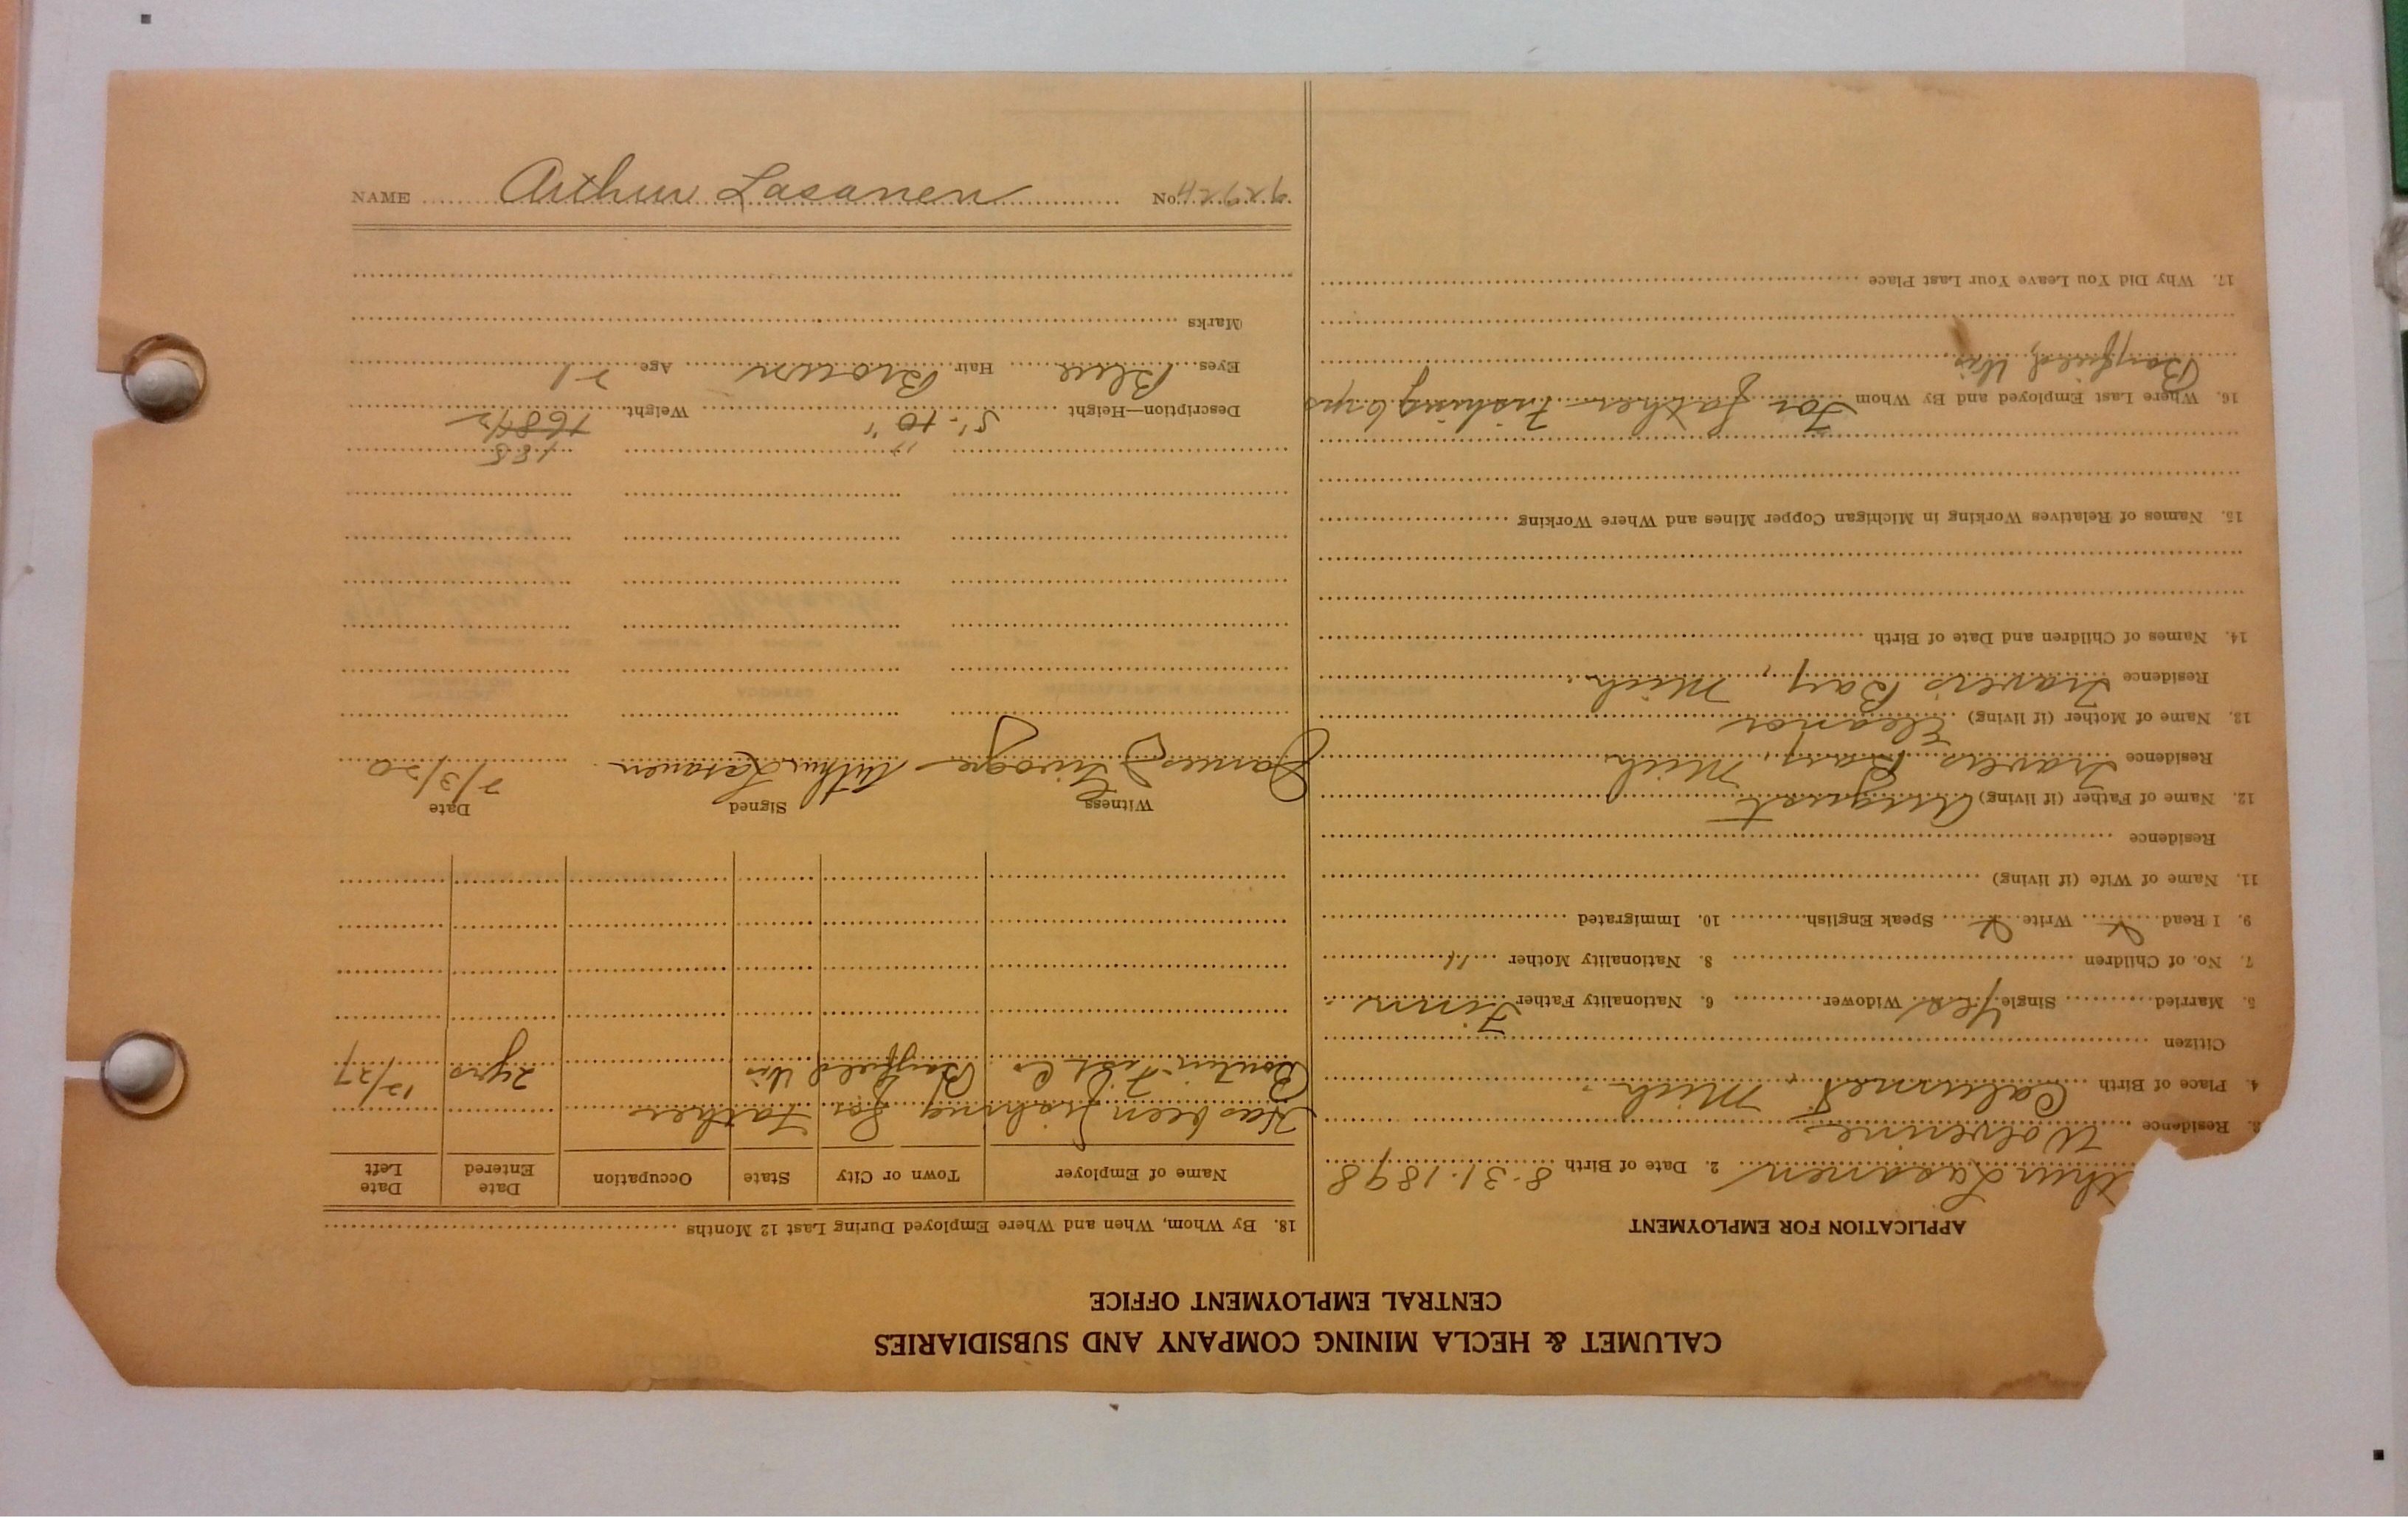 CALUMET & HECLA MINING COMPANY AND SUBSIDIARIES
CENTRAL EMPLOYMENT OFFICE
APPLICATION FOR EMPLOYMENT
thur Lasanen 2. Date of Birth 8-31-1898
3. Residence Wolverine
4. Place of Birth Calumet, Mich.
Citizen
5. Married Single Yes Widower 6. Nationality Father Finn
7. No. of Children 8. Nationality Mother "
9. I Read X Write X Speak English 10. Immigrated
11. Name of Wife (if living)
Residence
12. Name of Father (if living) August
Residence Travers Bay, Mich.
13. Name of Mother (if living) Eleanor
Residence Travers Bay, Mich.
14. Names of Children and Date of Birth
15. Names of Relatives Working in Michigan Copper Mines and Where Working
16. Where Last Employed and By Whom For father Fishing 6 yrs
Bayfield, Wis
17. Why Did You Leave Your Last Place
18. By Whom, When and Where Employed During Last 12 Months
Name of Employer Town or City State Occupation Date Entered Date Left
Has been fishing for Father
Boutin Fish Co Bayfield Wis 2 yrs 12/27
Witness Signed Date
James Arthur Lasanen 7/3/20
" 185
Description—Height 5'-10" Weight 168 1/2
Eyes Blue Hair Brown Age 21
Marks
NAME Arthur Lasanen No.